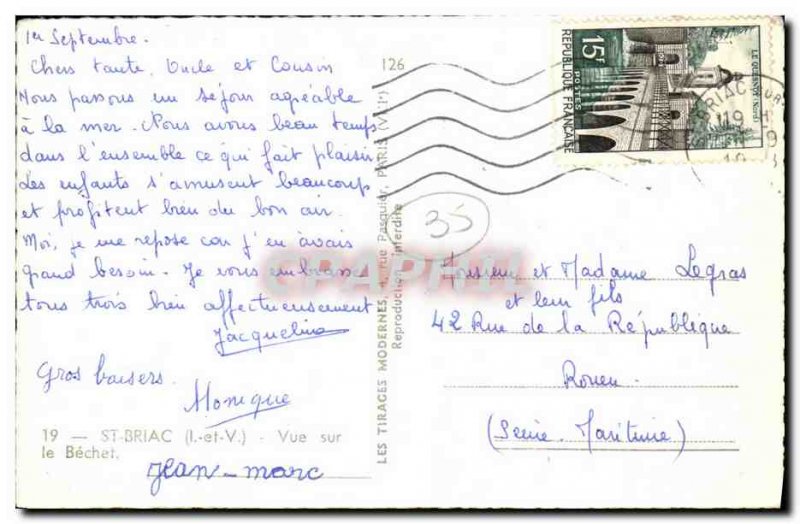 1er Septembre.
Chers tante, Oncle et Cousin
Nous passons un séjour agréable
à la mer. Nous avons beau temps
dans l'ensemble ce qui fait plaisir
Les enfants s'amusent beaucoup
et profitent bien du bon air.
Moi, je me repose car j'en avais
grand besoin. Je vous embrasse
tous trois bien affectueusement
Jacqueline
Gros baisers.
Monique
19 — ST-BRIAC (I.-et-V.) - Vue sur
le Béchet.
jean-marc
126
LES TIRAGES MODERNES, rue Pasquier, PARIS
Reproduction interdite
35
CPAPHIL
15F
POSTES
REPUBLIQUE FRANÇAISE
LE QUESNOY (NORD)
BRIAC
Monsieur et Madame Legras
et leur fils
42 Rue de la République
Rouen
(Seine-Maritime)